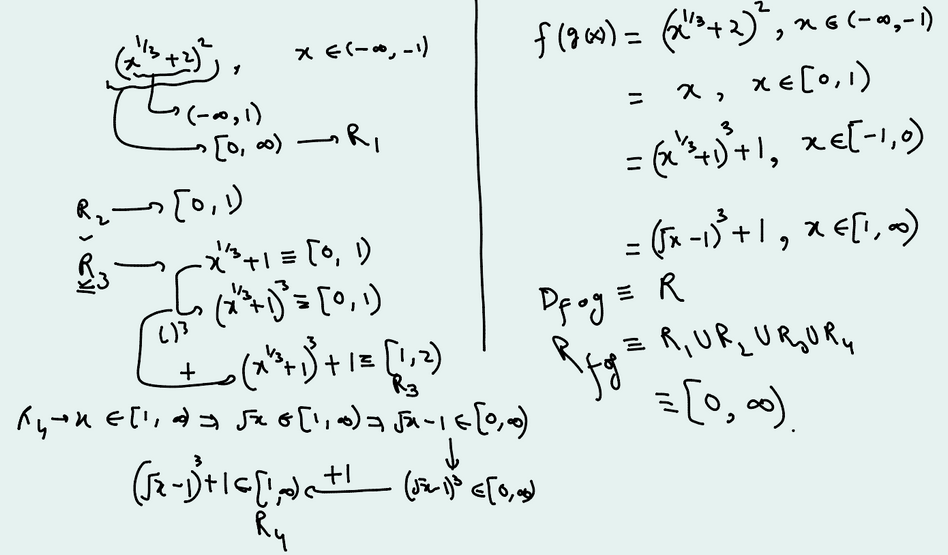 (x^{1/3}+2)^2, x ∈ (-∞, -1)
→ (-∞, 1)
→ [0, ∞) → R_1
R_2 → [0, 1)
R_3 → x^{1/3}+1 ≡ [0, 1)
( )^3 (x^{1/3}+1)^3 ≡ [0, 1)
+ (x^{1/3}+1)^3 + 1 ≡ [1, 2)
R_3
R_4 → x ∈ [1, ∞) ⇒ √x ∈ [1, ∞) ⇒ √x - 1 ∈ [0, ∞)
(√x - 1)^3 + 1 ∈ [1, ∞) ← +1 (√x - 1)^3 ∈ [0, ∞)
R_4
f(g(x)) = (x^{1/3}+2)^2, x ∈ (-∞, -1)
= x, x ∈ [0, 1)
= (x^{1/3}+1)^3 + 1, x ∈ [-1, 0)
= (√x - 1)^3 + 1, x ∈ [1, ∞)
D_{fog} ≡ R
R_{fg} ≡ R_1 ∪ R_2 ∪ R_3 ∪ R_4
≡ [0, ∞).